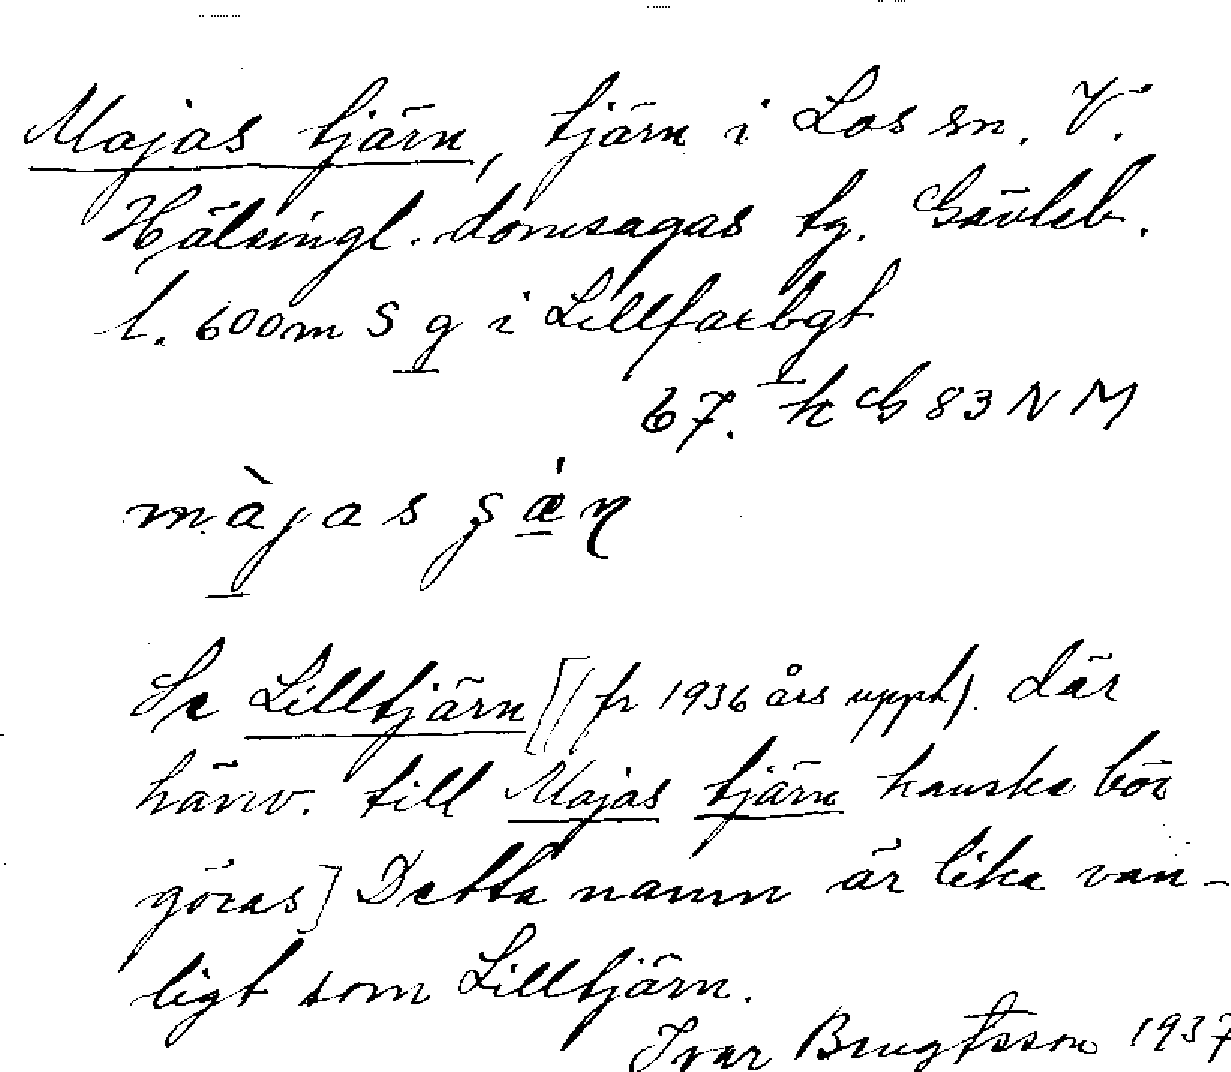 Majas tjärn, tjärn i Los sn. V.
Hälsingl. domsagas tg. Gävleb.
l. 600m S g i Lillfarbgt
67. k G 83 N M
Se Lilltjärn [(fr 1936 års uppt). där
hänv. till Majas tjärn kanske bör
göras] Detta namn är lika van-
ligt som Lilltjärn.
Ivar Bengtsson 1937